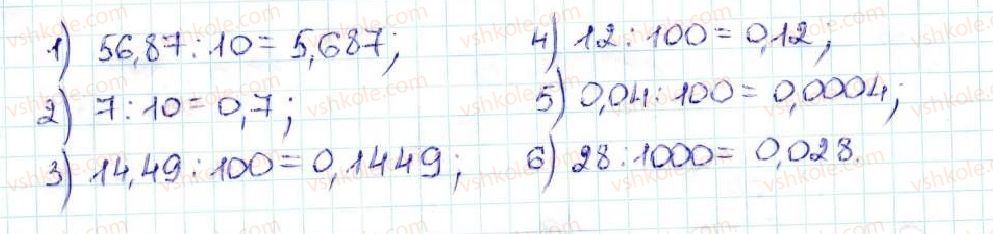 1) 56,87 : 10 = 5,687;
2) 7 : 10 = 0,7;
3) 14,49 : 100 = 0,1449;
4) 12 : 100 = 0,12;
5) 0,04 : 100 = 0,0004;
6) 28 : 1000 = 0,028.
vshkole.com